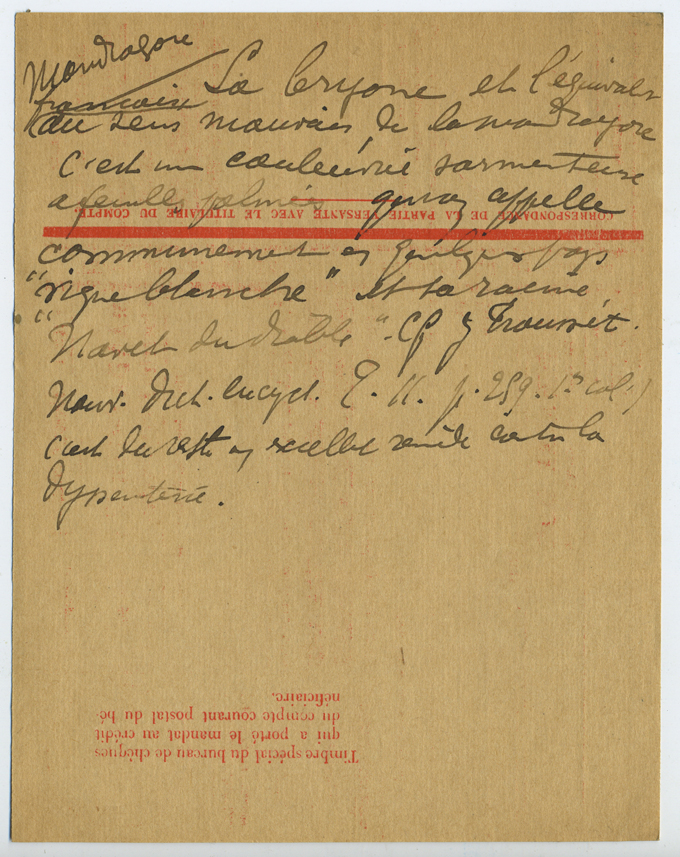 Mandragore
française
La bryone est l'équivalt
au sens mauvais de la mandragore
c'est une couleuvrée sarmenteuse
a feuilles palmées qu'on appelle
CORRESPONDANCE DE LA PARTIE VERSANTE AVEC LE TITULAIRE DU COMPTE.
communément en quelques pays
"vigne blanche" et sa racine
"Navet du diable". Cf Trousset.
Nouv. Dict. encycl. T. II. p. 259. 1re col.)
c'est du reste un excellt remède contre la
dysenterie.
Timbre spécial du bureau de chèques
qui a porté le mandat au crédit
du compte courant postal du bé-
néficiaire.